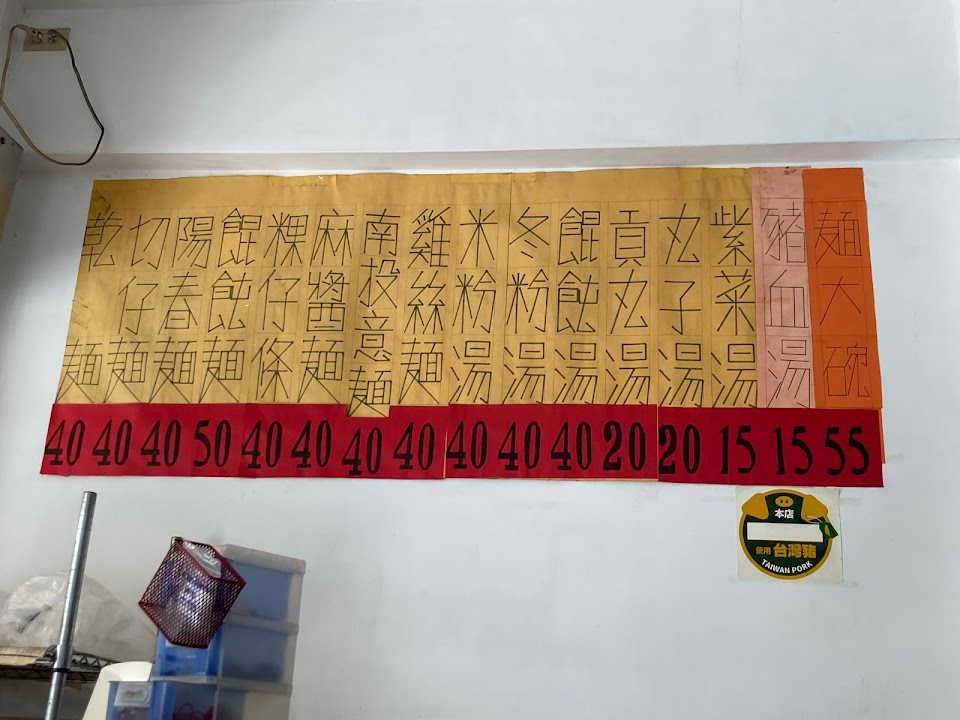 乾麵 40
切仔麵 40
陽春麵 40
餛飩麵 50
粿仔條 40
麻醬麵 40
南投意麵 40
雞絲麵 40
米粉湯 40
冬粉湯 40
餛飩湯 40
貢丸湯 20
丸子湯 20
紫菜湯 15
豬血湯 15
麵大碗 55
本店
使用 台灣豬
TAIWAN PORK